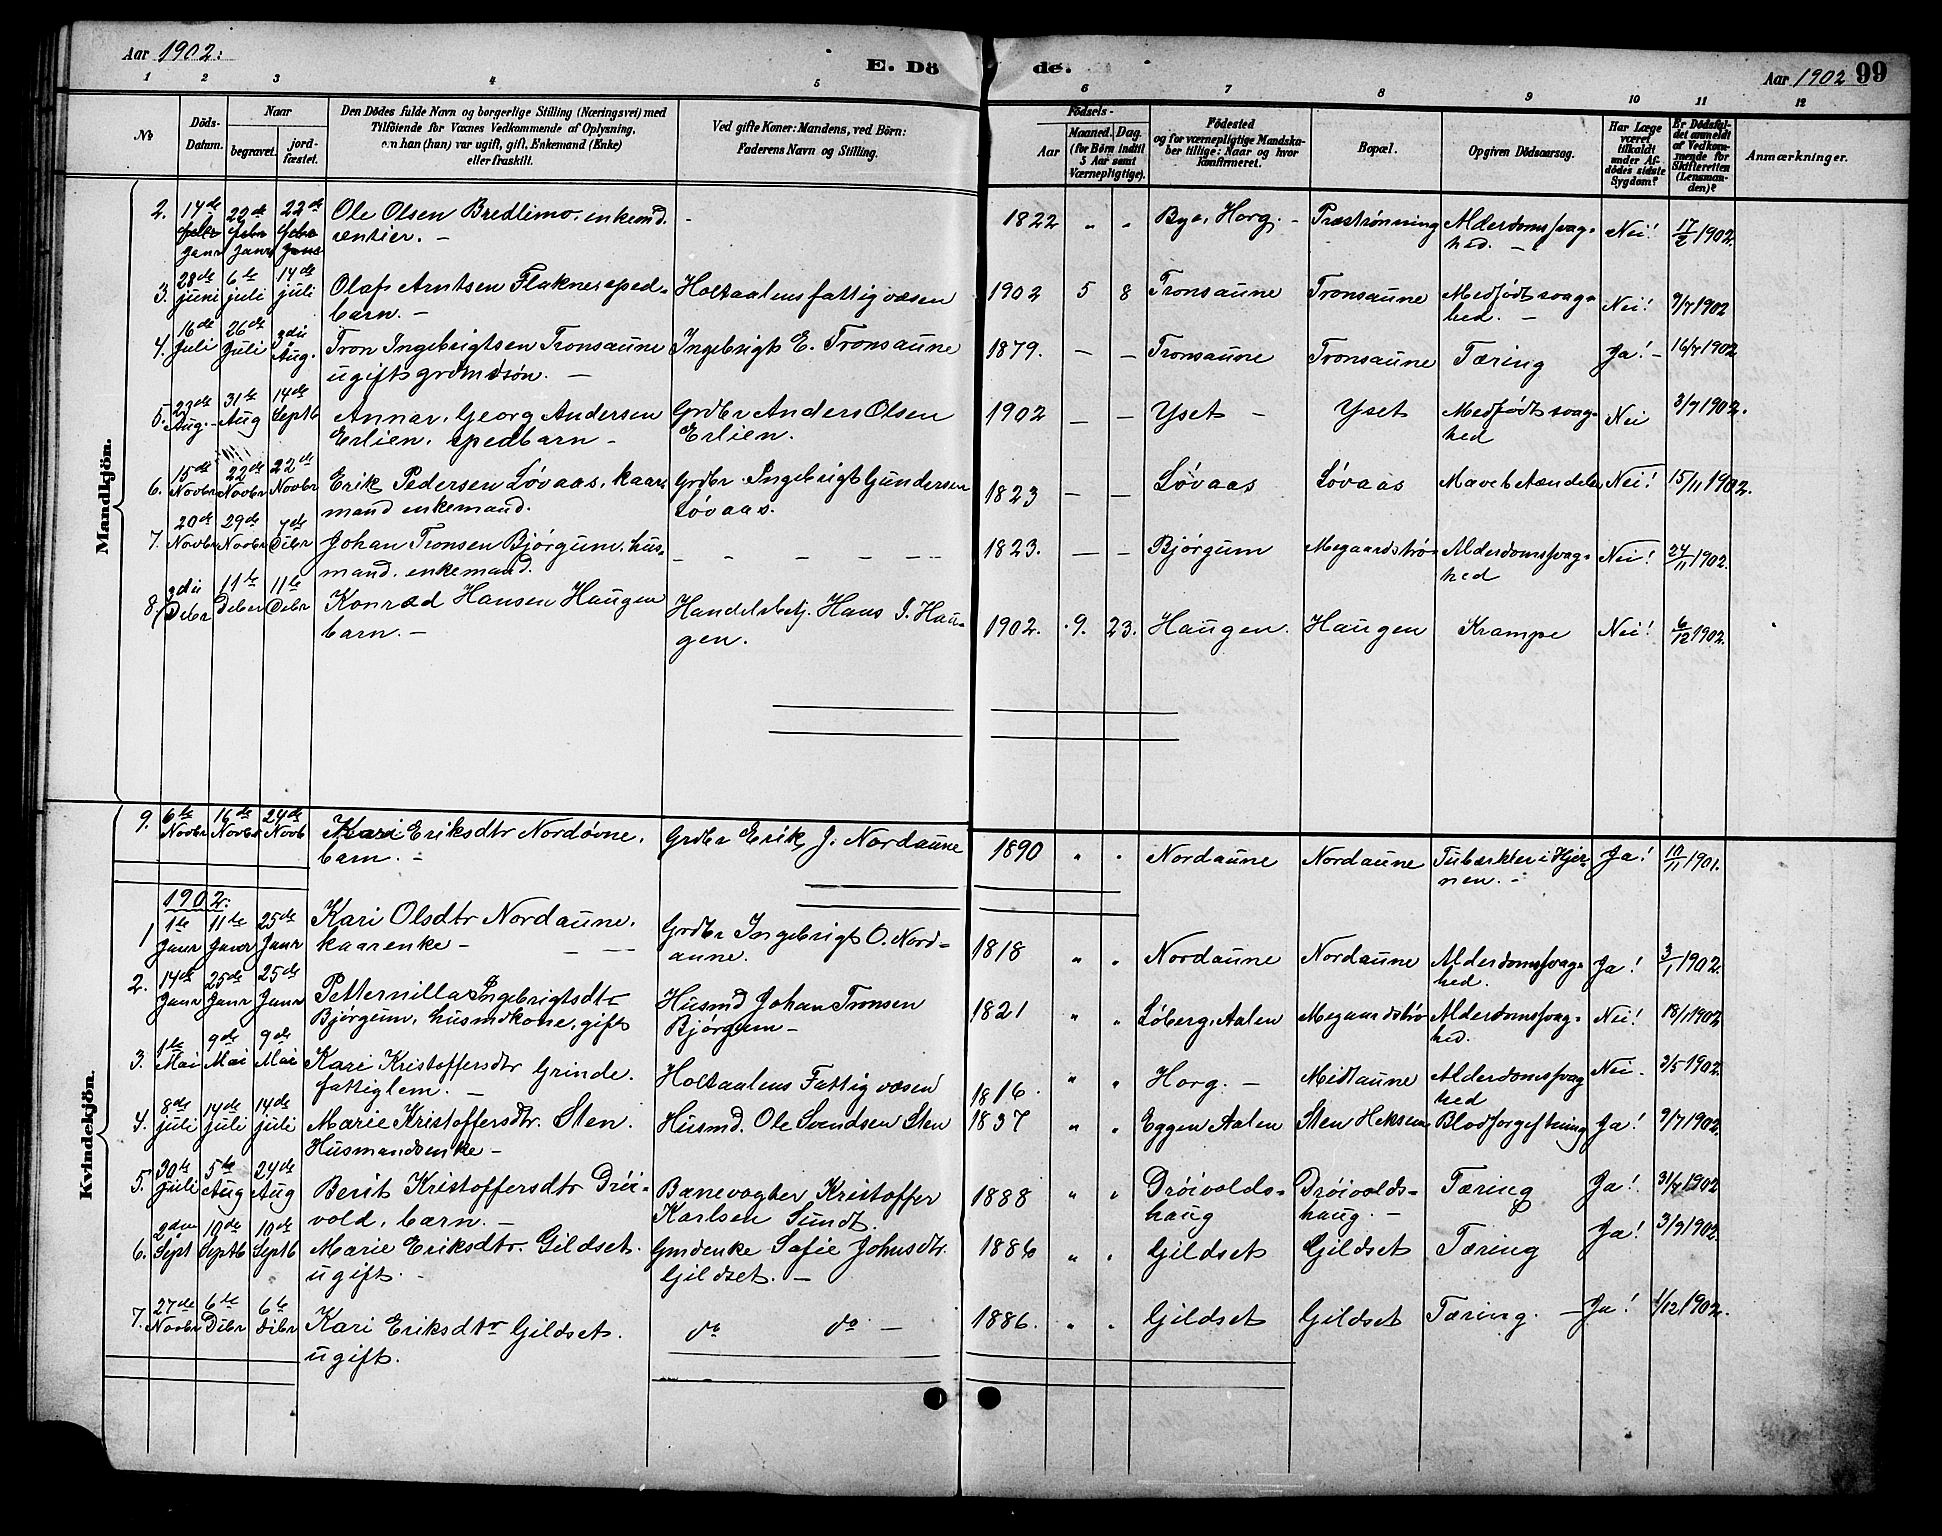 Aar 1902.
E. Döde.
Aar 1902 99
1 2 3 4 5 6 7 8 9 10 11 12
No
Döds-Datum.
Naar
begravet.
jordfæstet.
Den Dödes fulde Navn og borgerlige Stilling (Næringsvei) med
Tilföiende for Voxnes Vedkommende af Oplysning,
om han (hun) var ugift, gift, Enkemand (Enke)
eller fraskilt.
Ved gifte Koner: Mandens, ved Börn:
Faderens Navn og Stilling.
Födsels-
Aar
Maaned. Dag.
(for Börn indtil
5 Aar samt
Værnepligtige).
Födested
og for værnepligtige Mandskaber tillige: Naar og hvor
konfirmeret.
Bopæl.
Opgiven Dödsaarsag.
Har Læge
været
tilkaldt
under Afdödes sidste
Sygdom?
Er Dödsfaldet anmeldt
af Vedkommende for
Skifteretten
(Lensmanden)?
Anmærkninger.
Mandkjön.
2. 14de Janr 22de Janr 22de Ole Olsen Bredlimo, enkemd. - 1822 " " Bya, Horg. - Præstrønning Alderdomssvag- Nei! 17/2 1902.
rentier. - hed. -
3. 28de juni 6te juli 14de juli Olaf Arntsen Flaknes, sped- Holtaalens fattigvæsen 1902 5 8 Tronsaune Tronsaune Medfødt svag- Nei! 9/7 1902
barn. - hed. -
4. 16de Juli 26de Juli 3die Aug. Tron Ingebrigtsen Tronsaune Ingebrigt E. Tronsaune 1879. - - Tronsaune Tronsaune Tæring Ja! - 16/7 1902
ugift grdmdsøn. -
5. 23de Aug. 31te Aug 14de Septb Annar, Georg Andersen Grdbr Anders Olsen 1902 - - Yset - Yset Medfødt svag- Nei 3/9 1902.
Erlien, spedbarn - Erlien. hed
6. 15de Novbr 22de Novbr 22de Novbr Erik Pedersen Løvaas, kaar- Grdbr. Ingebrigt Gundersen 1823 - - Løvaas Løvaas Mavebetændelse Nei! 15/11 1902.
mand enkemand. Løvaas.
7. 20de Novbr 29de Novbr 7de Debr Johan Tronsen Bjørgum, hus- - - - - 1823. - - Bjørgum Megaardstrø Alderdomssvag- Nei! 24/11 1902.
mand, enkemand. hed
8. 3die Debr 11te Deber 11te Debr Konrad Hansen Haugen Handelsbetj. Hans I. Hau- 1902. 9. 23. Haugen. Haugen Krampe Nei! 6/12 1902.
barn. - gen.
Kvindekjön.
9. 6te Novbr 16de Novbr 24de Novb Kari Eriksdtr Nordøvne. Grdbr Erik J. Nordaune 1890 " " Nordaune Nordaune Tubærkler i Hjer- Ja! 10/11 1901.
barn. - nen. -
1902.
1 1te Janr 11te Janr 25de Janr Kari Olsdtr Nordaune. Grdbr Ingebrigt O. Nord- 1818 " " Nordaune Nordaune Alderdomssvag- Ja! 3/1 1902.
kaarenke - aune. hed.
2. 14de Janr 25de Janr 25de Janr Petternilla Ingebrigtsdtr Husmd Johan Tronsen 1821 " " Løberg, Aalen Megaardstrø Alderdomssvag- Nei! 18/1 1902
Bjørgum, husmdkone, gift Bjørgum - hed.
3. 1te Mai 9de Mai 9de Mai Kari Kristoffersdtr Grinde. Holtaalens Fattigvæsen 1816. " " Horg. - Midtaune Alderdomssvag Nei. 3/5 1902.
fattiglem. - hed
4. 8de juli 14de juli 14de juli Marie Kristoffersdtr. Sten. Husmd. Ole Svendsen Sten 1837 " " Eggen Aalen Sten Heksem Blodforgiftning Ja! 9/7 1902.
Husmandsenke -
5. 30te Juli 5te Aug 24de Aug Berit Kristoffersdtr Drøi- Banevogter Kristoffer 1888 " " Drøivolds- Drøivolds- Tæring Ja! 31/7 1902
vold, barn. - Karlsen Sundt. haug haug. -
6. 2den Sept 10de Septb 10de Septb Marie Eriksdtr. Gildset. Gmdenke Safie Johnsdtr. 1886 " " Gildset Gildset Tæring Ja! 3/9 1902.
ugift. - Gildset. -
7. 27de Novbr 6te Debr 6te Debr Kari Eriksdtr Gildset. do do - 1886. " " Gildset Gildset Tæring. - Ja! 1/12 1902.
ugift.